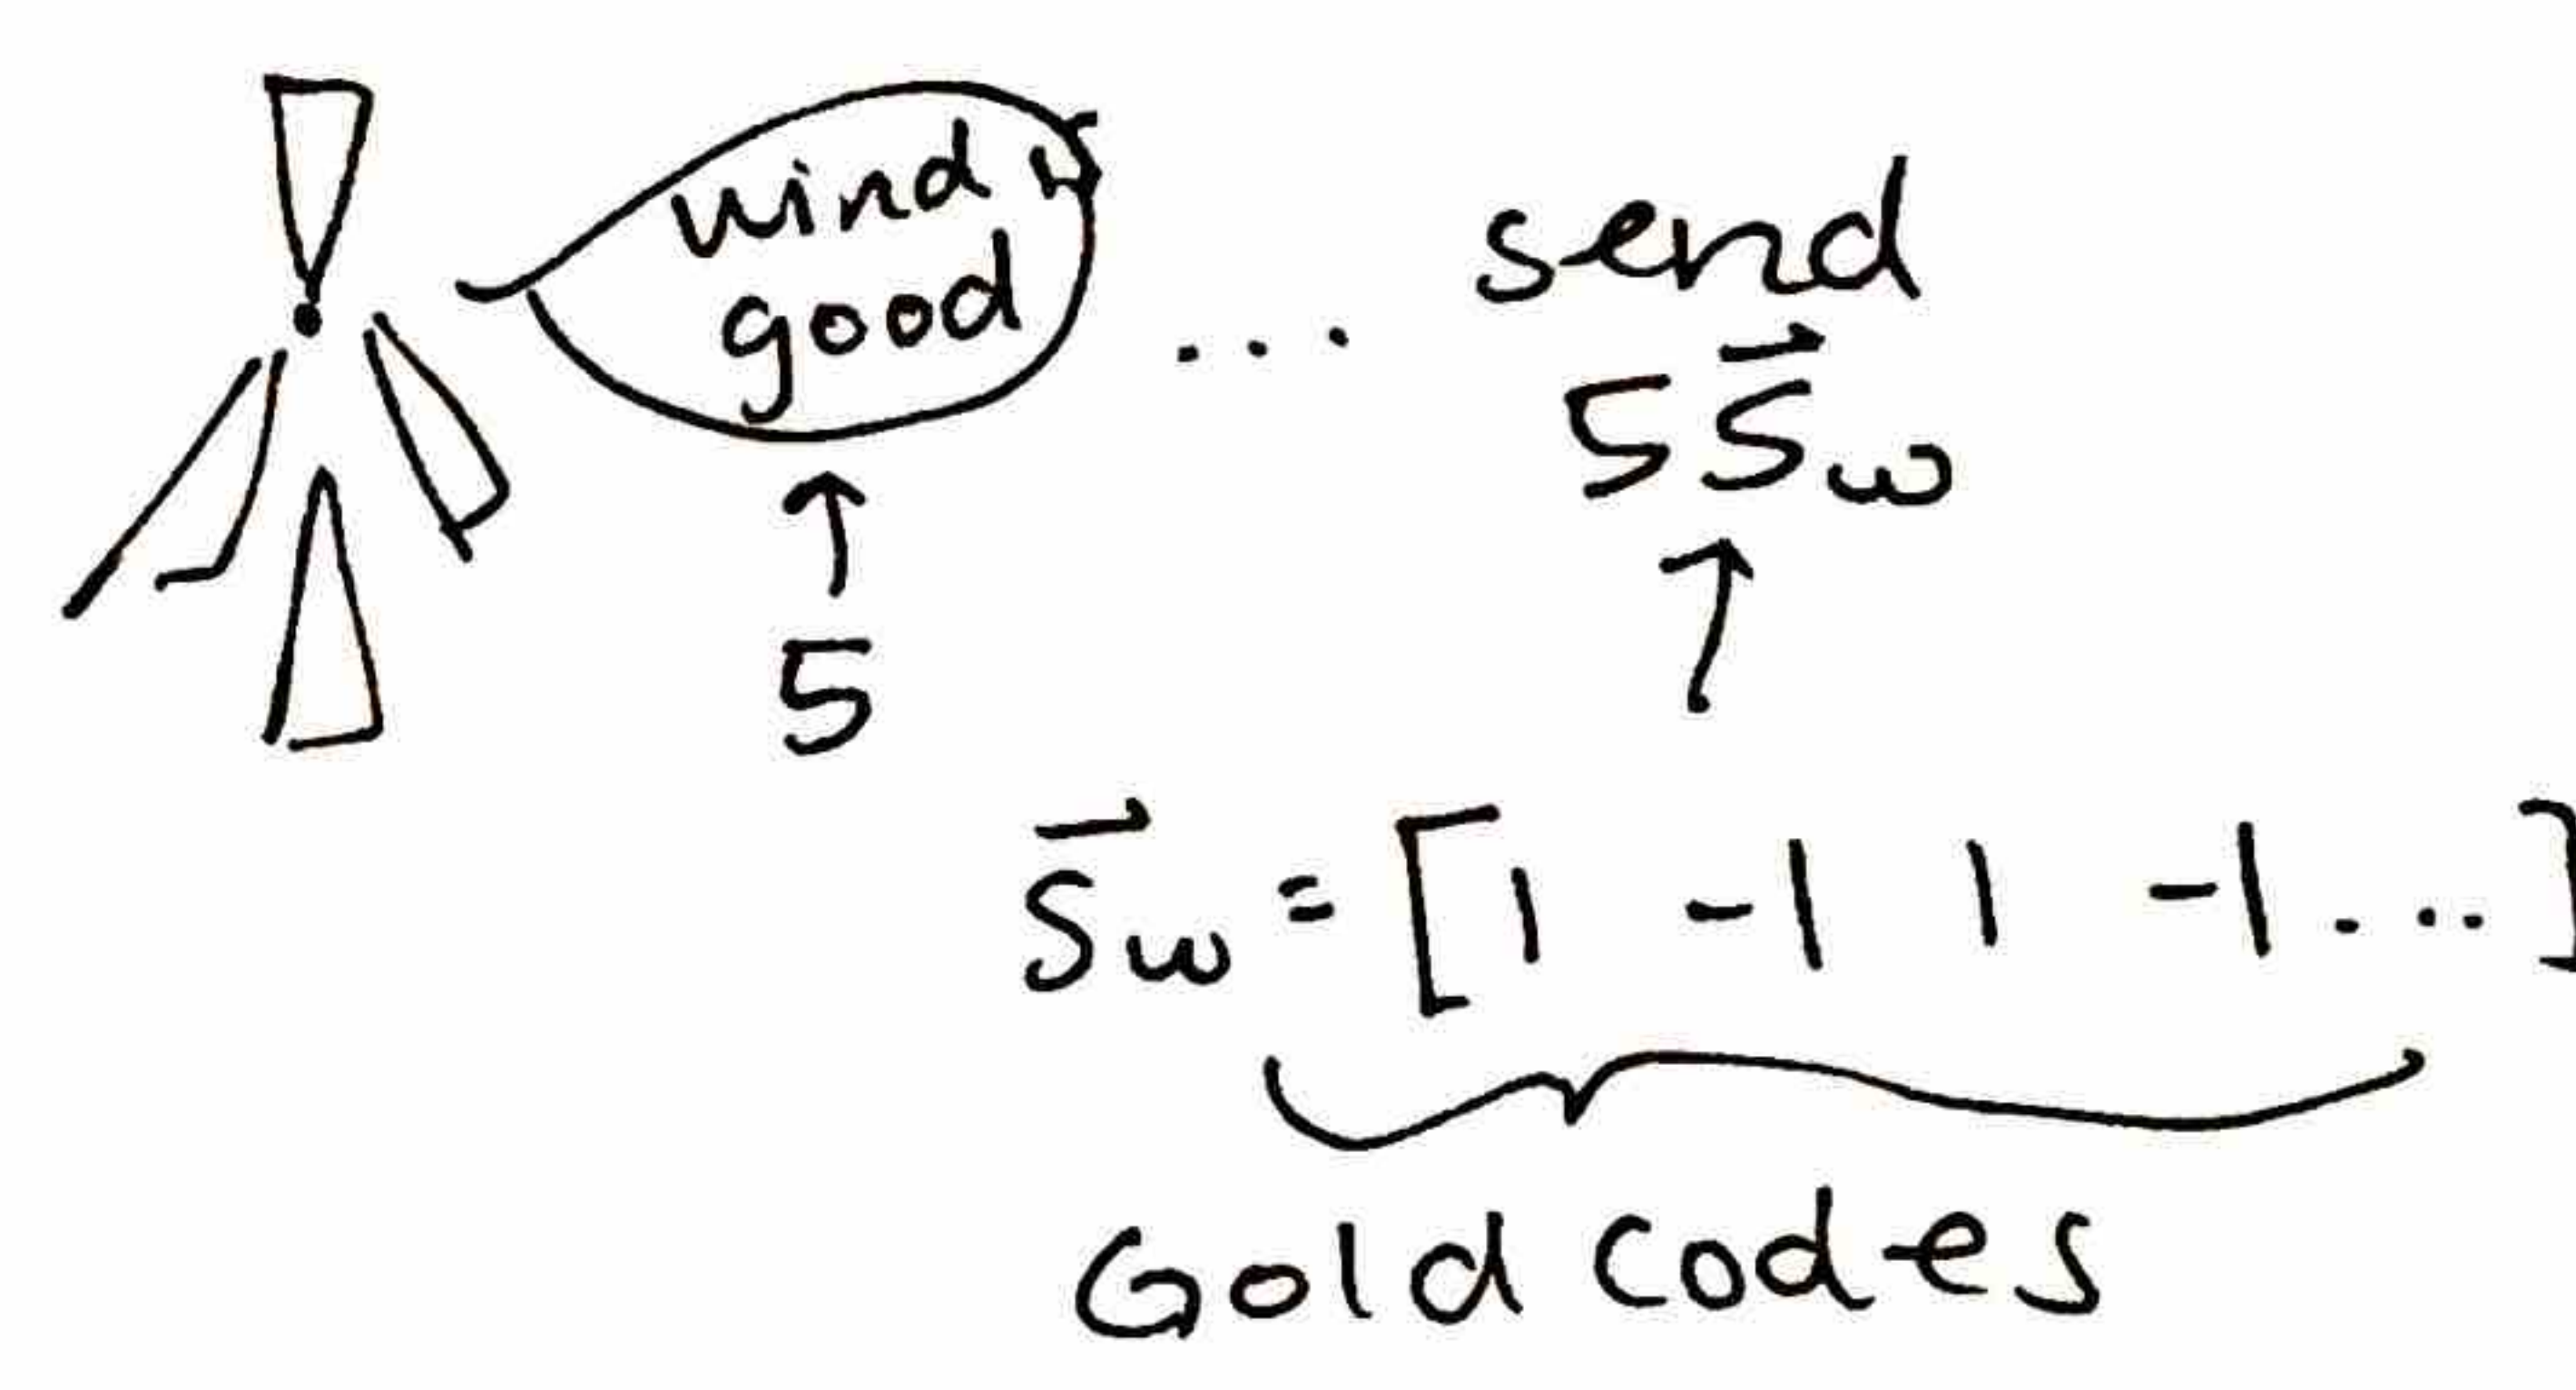 wind is
good
5
...
send
5 S⃗w
S⃗w = [1 -1 1 -1 ...]
Gold codes